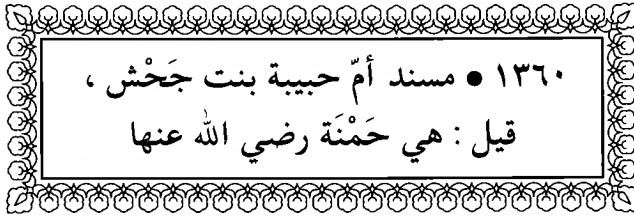 ١٣٦٠ ● مسند أمّ حبيبة بنت جَحْش ،
قيل : هي حَمْنَة رضي الله عنها